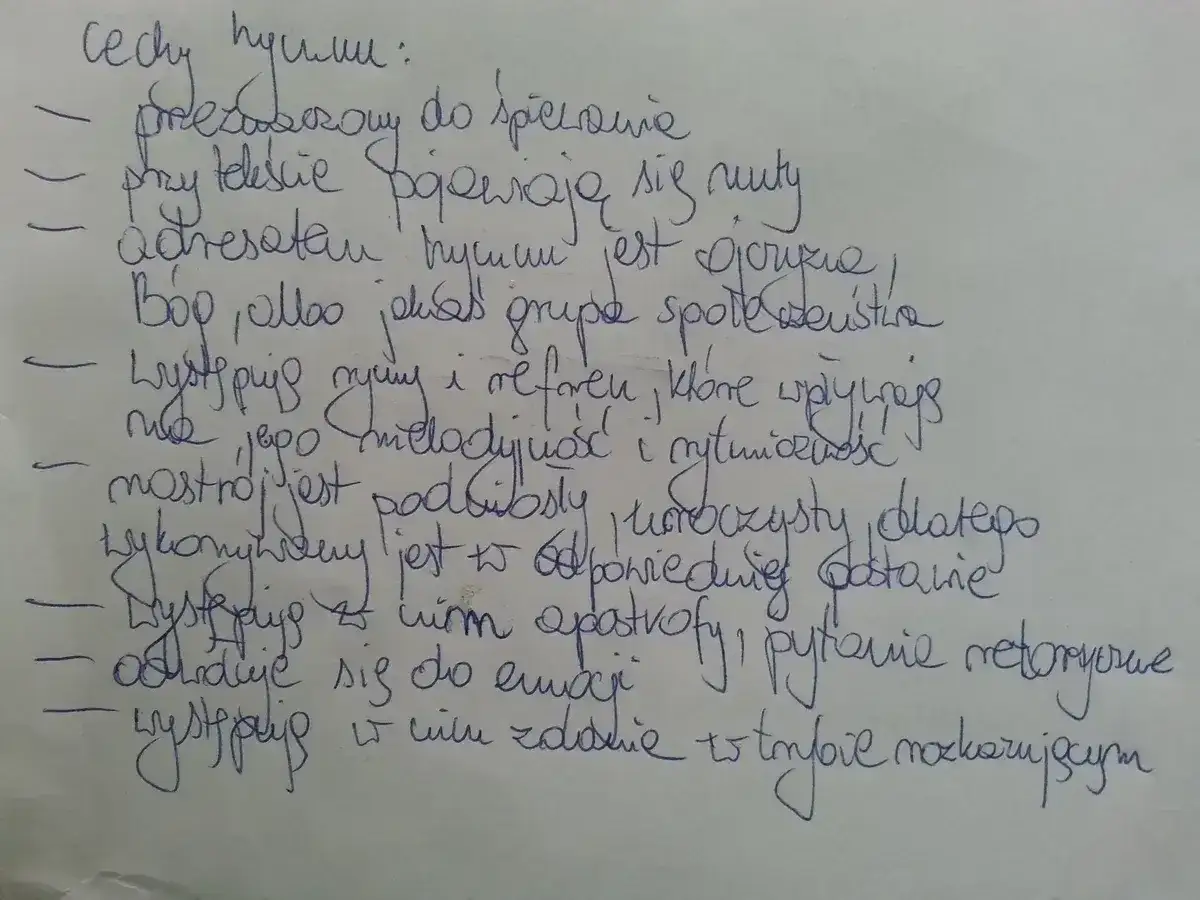 Cechy hymnu:
— przeznaczony do śpiewania
— przy tekście pojawiają się nuty
— adresatem hymnu jest ojczyzna,
Bóg, albo jakaś grupa społeczeństwa
— występują rymy i refren, które wpływają
na jego melodyjność i rytmiczność
— nastrój jest podniosły, uroczysty, dlatego
wykonywany jest w odpowiedniej postawie
— występują w nim apostrofy, pytania retoryczne
— odwołuje się do emocji
— występują w nim zdania w trybie rozkazującym